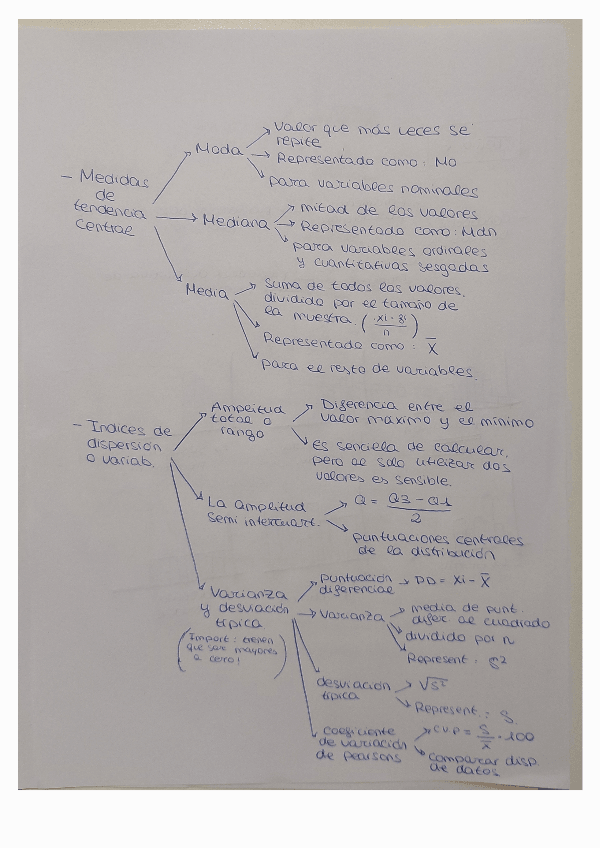 - Medidas
de
tendencia
central
Moda
Valor que más veces se
repite
Representado como: Mo
para variables nominales
Mediana
mitad de los valores
Representado como: Mdn
para variables ordinales
y cuantitativas sesgadas
Media
suma de todos los valores,
dividido por el tamaño de
la muestra. (xi · fi / n)
Representado como: X̅
para el resto de variables.
- Índices de
dispersión
o variab.
Amplitud
total o
rango
Diferencia entre el
valor máximo y el mínimo
es sencilla de calcular,
pero al solo utilizar dos
valores es sensible.
La amplitud
semi intercuart.
Q = Q3 - Q1 / 2
puntuaciones centrales
de la distribución
Varianza
y desviación
típica
(Import: tienen
que ser mayores
a cero!)
puntuación
diferencial
→ PD = xi - X̅
Varianza
media de punt.
difer al cuadrado
dividido por n
Represent: S²
desviación
típica
√S²
Represent.: S
coeficiente
de variación
de pearsons
CVP = S / x̅ · 100
comparar disp.
de datos